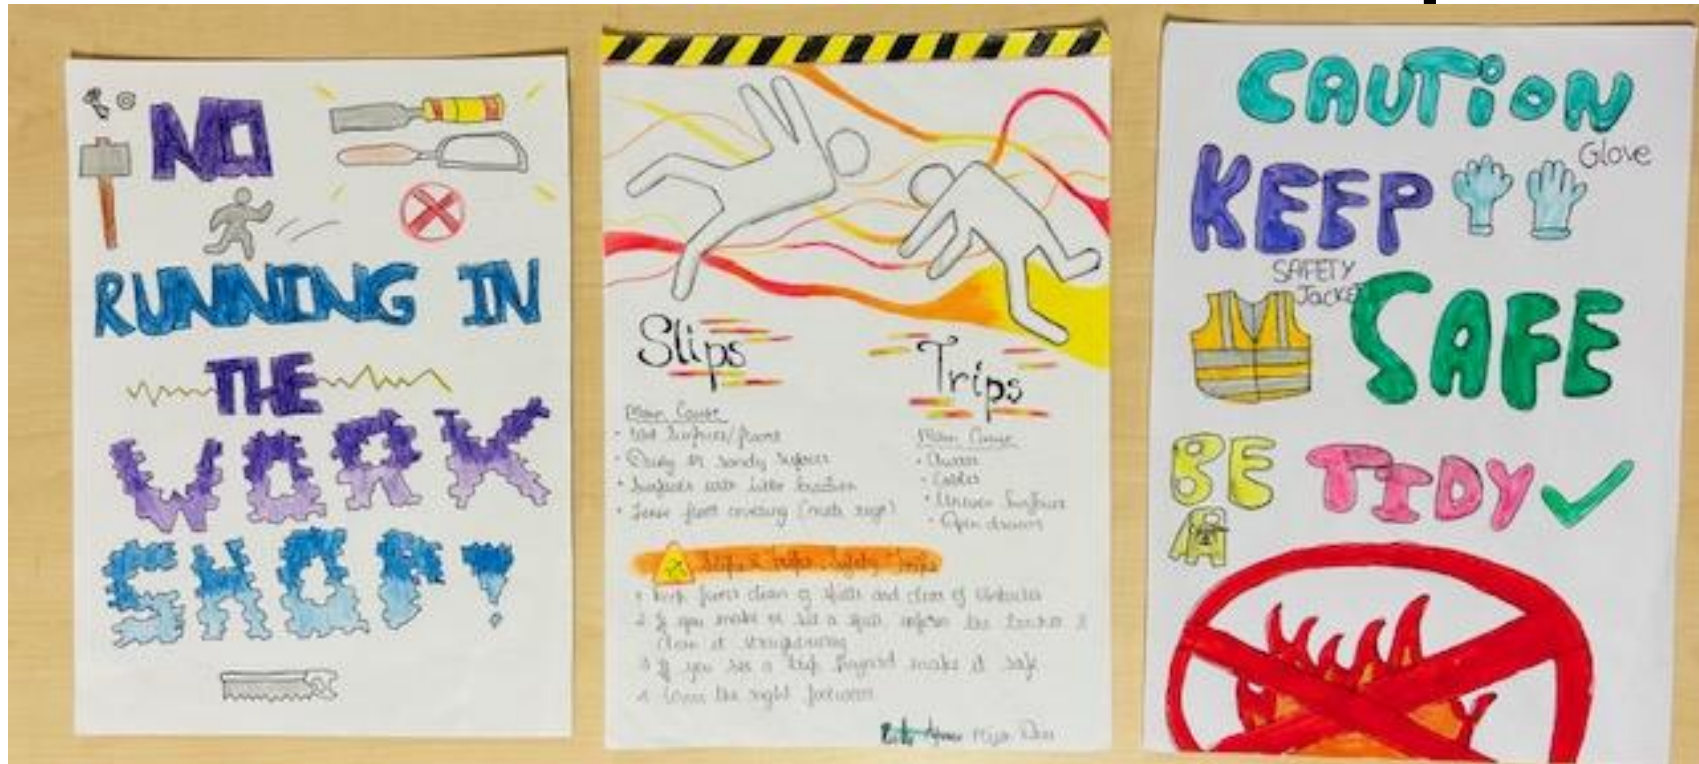 NO
RUNNING IN
THE
WORK
SHOP!
Slips
Main Cause
• Wet Surfaces/floors
• Oily or sandy surfaces
• Surfaces with little traction
• Loose floor covering (mats rugs)
Trips
Main Cause
• Cables
• Uneven Surfaces
• Open drawers
Slips & trips Safety
1 Keep floors clean of spills and clear of obstacles
2 If you make or see a spill, inform the teacher &
clean it straightaway
3 If you see a trip hazard make it safe
4 the right footwear
CAUTION
Glove
KEEP
SAFETY
Jacket
SAFE
BE TIDY